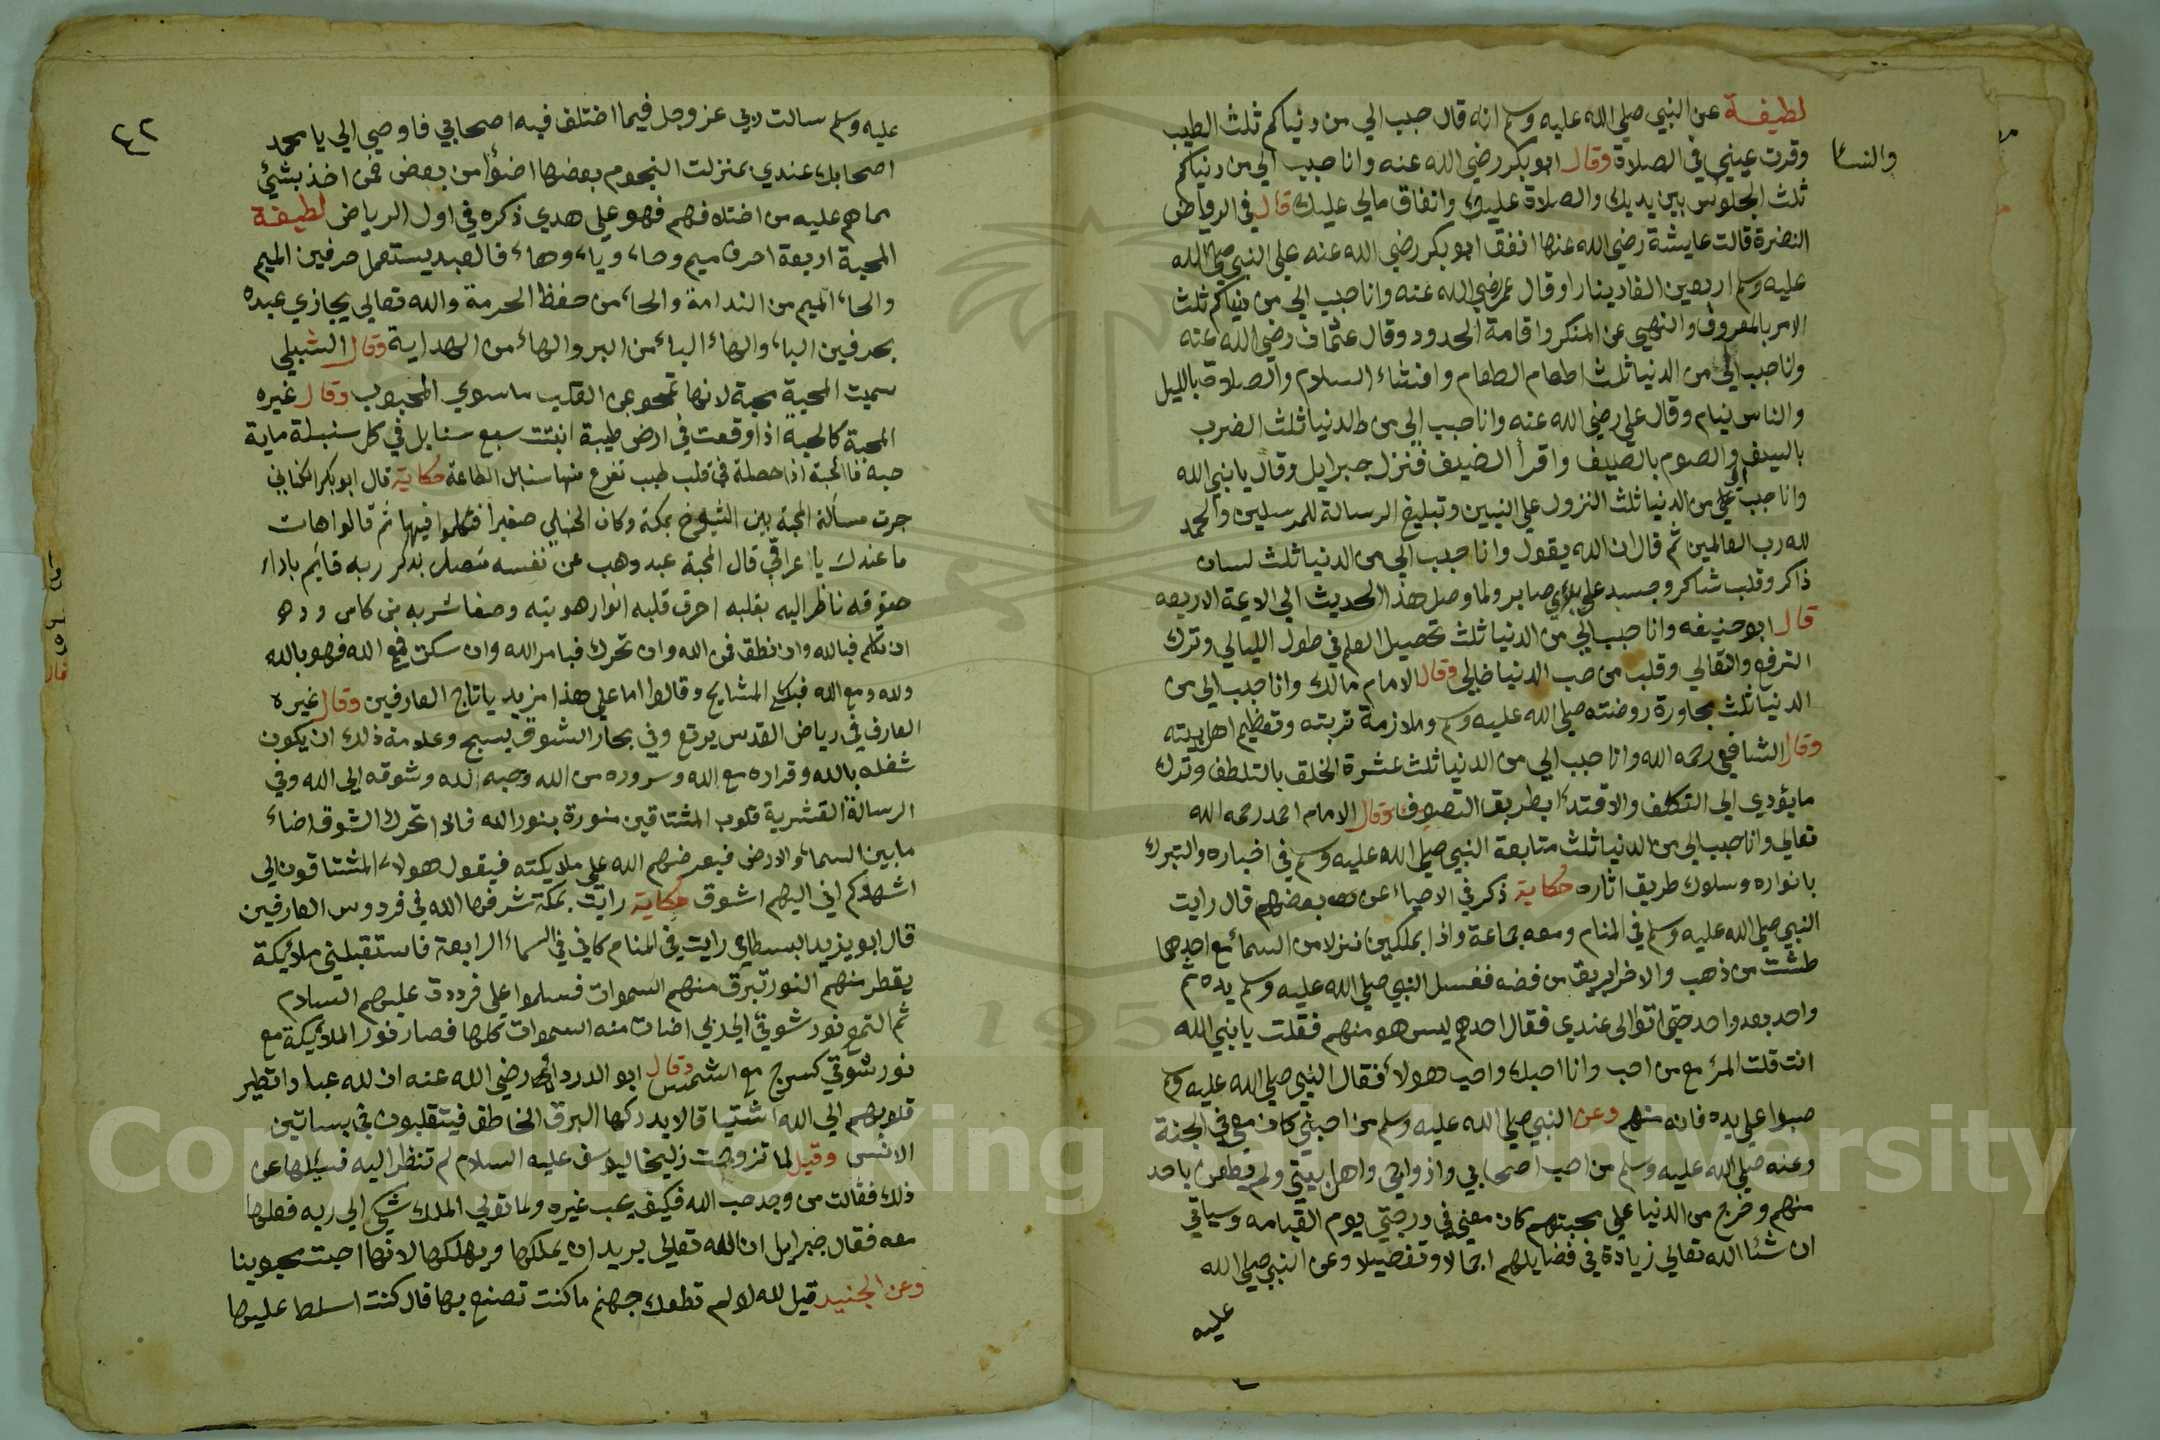 لطيفة عن النبي صلي الله عليه وسلم انه قال حبب الي من دنياكم ثلث الطيب
والنسا
وقرت عيني في الصلاة وقال ابو بكر رضي الله عنه وانا حبب الي من دنياكم
ثلث الجلوس بين يديك والصلاة عليك وانفاق مالي عليك قال في الرياض
النضرة قالت عايشة رضي الله عنها انفق ابو بكر رضي الله عنه علي النبي صلي الله
عليه وسلم اربعين الفا دينارا وقال عمر رضي الله عنه وانا حبب الي من دنياكم ثلث
الامر بالمعروف والنهي عن المنكر واقامة الحدود وقال عثمان رضي الله عنه
وانا حبب الي من الدنيا ثلث اطعام الطعام وافشاء السلام والصلاة بالليل
والناس نيام وقال علي رضي الله عنه وانا حبب الي من الدنيا ثلث الضرب
بالسيف والصوم بالصيف واقرأ الضيف فنزل جبرايل وقال يا نبي الله
وانا حبب الي من الدنيا ثلث النزول علي النبيين وتبليغ الرسالة للمرسلين والحمد
لله رب العالمين ثم قال ان الله يقول وانا حبب الي من الدنيا ثلث لسان
ذاكر وقلب شاكر وجسد علي بلاي صابر ولما وصل هذا الحديث الي الايمة الاربعه
قال ابو حنيفه وانا حبب الي من الدنيا ثلث تحصيل العلم في طول الليالي وترك
الترفع والتعالي وقلب من حب الدنيا خالي وقال الامام مالك وانا حبب الي من
الدنيا ثلث مجاورة روضته صلي الله عليه وسلم وملازمة تربته وتعظيم اهل بيته
وقال الشافعي رحمه الله وانا حبب الي من الدنيا ثلث عشرة الخلق بالتلطف وترك
ما يؤدي الي التكلف والاقتدأ بطريق التصوف وقال الامام احمد رحمه الله
تعالي وانا حبب الي من الدنيا ثلث متابعة النبي صلي الله عليه وسلم في اخباره والتبرك
بانواره وسلوك طريق اثاره حكاية ذكر في الاحياء عن بعضهم قال رايت
النبي صلي الله عليه وسلم في المنام ومعه جماعة واذا بملكين نزلا من السمائ مع احدهما
طشت من ذهب والاخر ابريق من فضه فغسل النبي صلي الله عليه وسلم يده ثم
واحد بعد واحد حتي اتوا الي عندي فقال احدهم ليس هو منهم فقلت يا نبي الله
انت قلت المرء مع من احب وانا احبك واحب هولاء فقال النبي صلي الله عليه وسلم
صبوا علي يده فانه منهم وعن النبي صلي الله عليه وسلم من احبني كان معي في الجنة
وعنه صلي الله عليه وسلم من احب اصحابي وازواجي واهل بيتي ولم يطعن باحد
منهم وخرج من الدنيا علي محبتهم كان معي في درجتي يوم القيامه وسياتي
ان شأ الله تعالي زيادة في فضايلهم اجمالا وتفصيلا وعن النبي صلي الله
عليه
٤٢
عليه وسلم سالت ربي عز وجل فيما اختلف فيه اصحابي فاوحي الي يا محمد
اصحابك عندي بمنزلت النجوم بعضها اضوأ من بعض فمن اخذ بشيئ
مما هم عليه من اختلافهم فهو علي هدي ذكره في اول الرياض لطيفة
المحبة اربعة احرف ميم وحاء وباء وهاء فالعبد يستعمل حرفين الميم
والحاء الميم من الندامة والحاء من حفظ الحرمة والله تعالي يجازي عبده
بحرفين الباء والهاء الباء من البر والهاء من الهداية وقال الشبلي
سميت المحبة محبة لانها تمحو عن القلب ما سوي المحبوب وقال غيره
المحبة كالحبة اذا وقعت في ارض طيبة انبتت سبع سنابل في كل سنبلة ماية
حبة فالمحبة اذا حصلة في قلب طيب تفرع منها سنابل الطاعة حكاية قال ابو بكر الكناني
جرت مسألة المحبة بين الشيوخ بمكة وكان الجنيد صغيرا فتكلموا فيها ثم قالوا هات
ما عندك يا عراقي قال المحبة عبد وهب عن نفسه متصل بذكر ربه قايم باداء
حقوقه ناظر اليه بقلبه احرق قلبه انوار هويته وصفا شربه من كاس وده
ان تكلم فبالله وان نطق فمن الله وان تحرك فبامر الله وان سكن فمع الله فهو بالله
ولله ومع الله فبكي المشايخ وقالوا ما علي هذا مزيد يا تاج العارفين وقال غيره
العارف في رياض القدس يرتع وفي بحار الشوق يسبح وعلامة ذلك ان يكون
شغله بالله وقراره مع الله وسروره من الله وحبه لله وشوقه الي الله وفي
الرسالة القشرية قلوب المشتاقين منورة بنور الله فاذا تحرك الشوق اضاء
ما بين السماء والارض فيعرضهم الله علي ملايكته فيقول هولاء المشتاقون الي
اشهدكم اني اليهم اشوق حكاية رايت بمكة شرفها الله في فردوس العارفين
قال ابو يزيد البسطامي رايت في المنام كاني في السماء الرابعة فاستقبلني ملائيكة
يقطر منهم النور تبرق منهم السموات فسلموا علي فرددت عليهم السلام
ثم التمع نور شوقي الي ربي اضات منه السموات كلها فصار نور الملائيكة مع
نور شوقي كسرج مع الشمس وقال ابو الدرداء رضي الله عنه ان لله عبادا تطير
قلوبهم الي الله اشتياقا لا يدركها البرق الخاطف فيتقلبون في بساتين
الانس وقيل لما تزوجت زليخا ليوسف عليه السلام لم تنظر اليه فسيلها عن
ذلك فقالت من وجد حب الله فكيف يحب غيره ولما تولي الملك شكي الي ربه فعلها
معه فقال جبرايل ان الله تعالي يريد ان يملكها ويهلكها لانها احبت محبوبنا
وعن الجنيد قيل لله لو لم تطعك جهنم ما كنت تصنع بها قال كنت اسلط عليها
Copyright © King Saud University
195